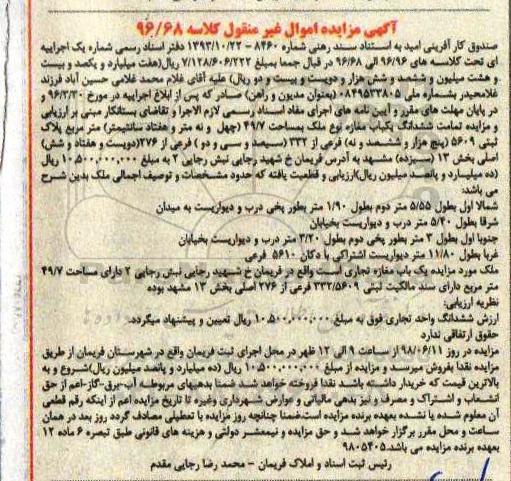 آگهی مزایده اموال غیر منقول کلاسه ۹۶/۶۸
صندوق کار آفرینی امید به استناد سند رهنی شماره ۸۴۶۰ - ۱۳۹۳/۱۰/۲۲ دفتر اسناد رسمی شماره یک اجراییه
ای تحت کلاسه های ۹۶/۹۶ الی ۹۶/۶۸ در قبال جمعا بمبلغ ۷/۱۲۸/۶۰۶/۲۲۲ ریال(هفت میلیارد و یکصد و بیست
و هشت میلیون و ششصد و شش هزار و دویست و بیست و دو ریال) علیه آقای غلام محمد غلامی حسین آباد فرزند
غلامحیدر بشماره ملی ۰۸۴۹۵۳۳۸۰۵ (بعنوان مدیون و راهن) صادر که پس از ابلاغ اجراییه در مورخ ۹۶/۳/۳۰ و
در پایان مهلت های مقرر و آیین نامه های اجرای مفاد اسناد رسمی لازم الاجرا و تقاضای بستانکار مبنی بر ارزیابی
و مزایده تمامت ششدانگ یکباب مغازه نوع ملک بمساحت ۴۹/۷ (چهل و نه متر و هفتاد سانتیمتر) متر مربع پلاک
ثبتی ۵۶۰۹ (پنج هزار و ششصد و نه) فرعی از ۳۳۲ (سیصد و سی و دو ) فرعی از ۲۷۶(دویست و هفتاد و شش)
اصلی بخش ۱۳ (سیزده) مشهد به آدرس فریمان خ شهید رجایی نبش رجایی ۲ به مبلغ ۱۰,۵۰۰,۰۰۰,۰۰۰ ریال
(ده میلیارد و پانصد میلیون ریال)ارزیابی و قطعیت یافته که حدود مشخصات و توصیف اجمالی ملک بدین شرح
می باشد:
شمالا اول بطول ۵/۵۵ متر دوم بطول ۱/۹۰ متر بطور پخی درب و دیواریست به میدان
شرقا بطول ۵/۴۰ متر درب و دیواریست بخیابان
جنوبا اول بطول ۳ متر بطور پخی دوم بطول ۳/۲۰ متر درب و دیواریست بخیابان
غربا بطول ۱۱/۸۰ متر دیواریست اشتراکی با دکان ۵۶۱۰ فرعی
ملک مورد مزایده یک باب مغازه تجاری است واقع در فریمان خ شهید رجایی نبش رجایی ۲ دارای مساحت ۴۹/۷
متر مربع دارای سند مالکیت ثبتی ۳۳۲/۵۶۰۹ فرعی از ۲۷۶ اصلی بخش ۱۳ مشهد بوده
نظریه ارزیابی:
ارزش ششدانگ واحد تجاری فوق به مبلغ ۱۰,۵۰۰,۰۰۰,۰۰۰ ریال تعیین و پیشنهاد میگردد.
حقوق ارتفاقی ندارد
مزایده در روز ۹۸/۰۶/۱۱ از ساعت ۹ الی ۱۲ ظهر در محل اجرای ثبت فریمان واقع در شهرستان فریمان از طریق
مزایده نقدا بفروش میرسد و مزایده از مبلغ ۱۰,۵۰۰,۰۰۰,۰۰۰ ریال (ده میلیارد و پانصد میلیون ریال)شروع و به
بالاترین قیمت که خریدار داشته باشد نقدا فروخته خواهد شد ضمنا بدهیهای مربوطه آب-برق-گاز-اعم از حق
انشعاب و اشتراک و مصرف و نیز بدهی مالیاتی و عوارض شهرداری وغیره تا تاریخ مزایده اعم از اینکه رقم قطعی
آن معلوم شده یا نشده بعهده برنده مزایده است.ضمنا چنانچه روز مزایده با تعطیلی مصادف گردد روز بعد در همان
ساعت و محل مقرر برگزار خواهد شد و حق مزایده و نیمعشر دولتی و هزینه های قانونی طبق تبصره ۶ ماده ۱۲
بعهده برنده مزایده می باشد.۹۸۰۵۴۰۵
رئیس ثبت اسناد و املاک فریمان - محمد رضا رجایی مقدم